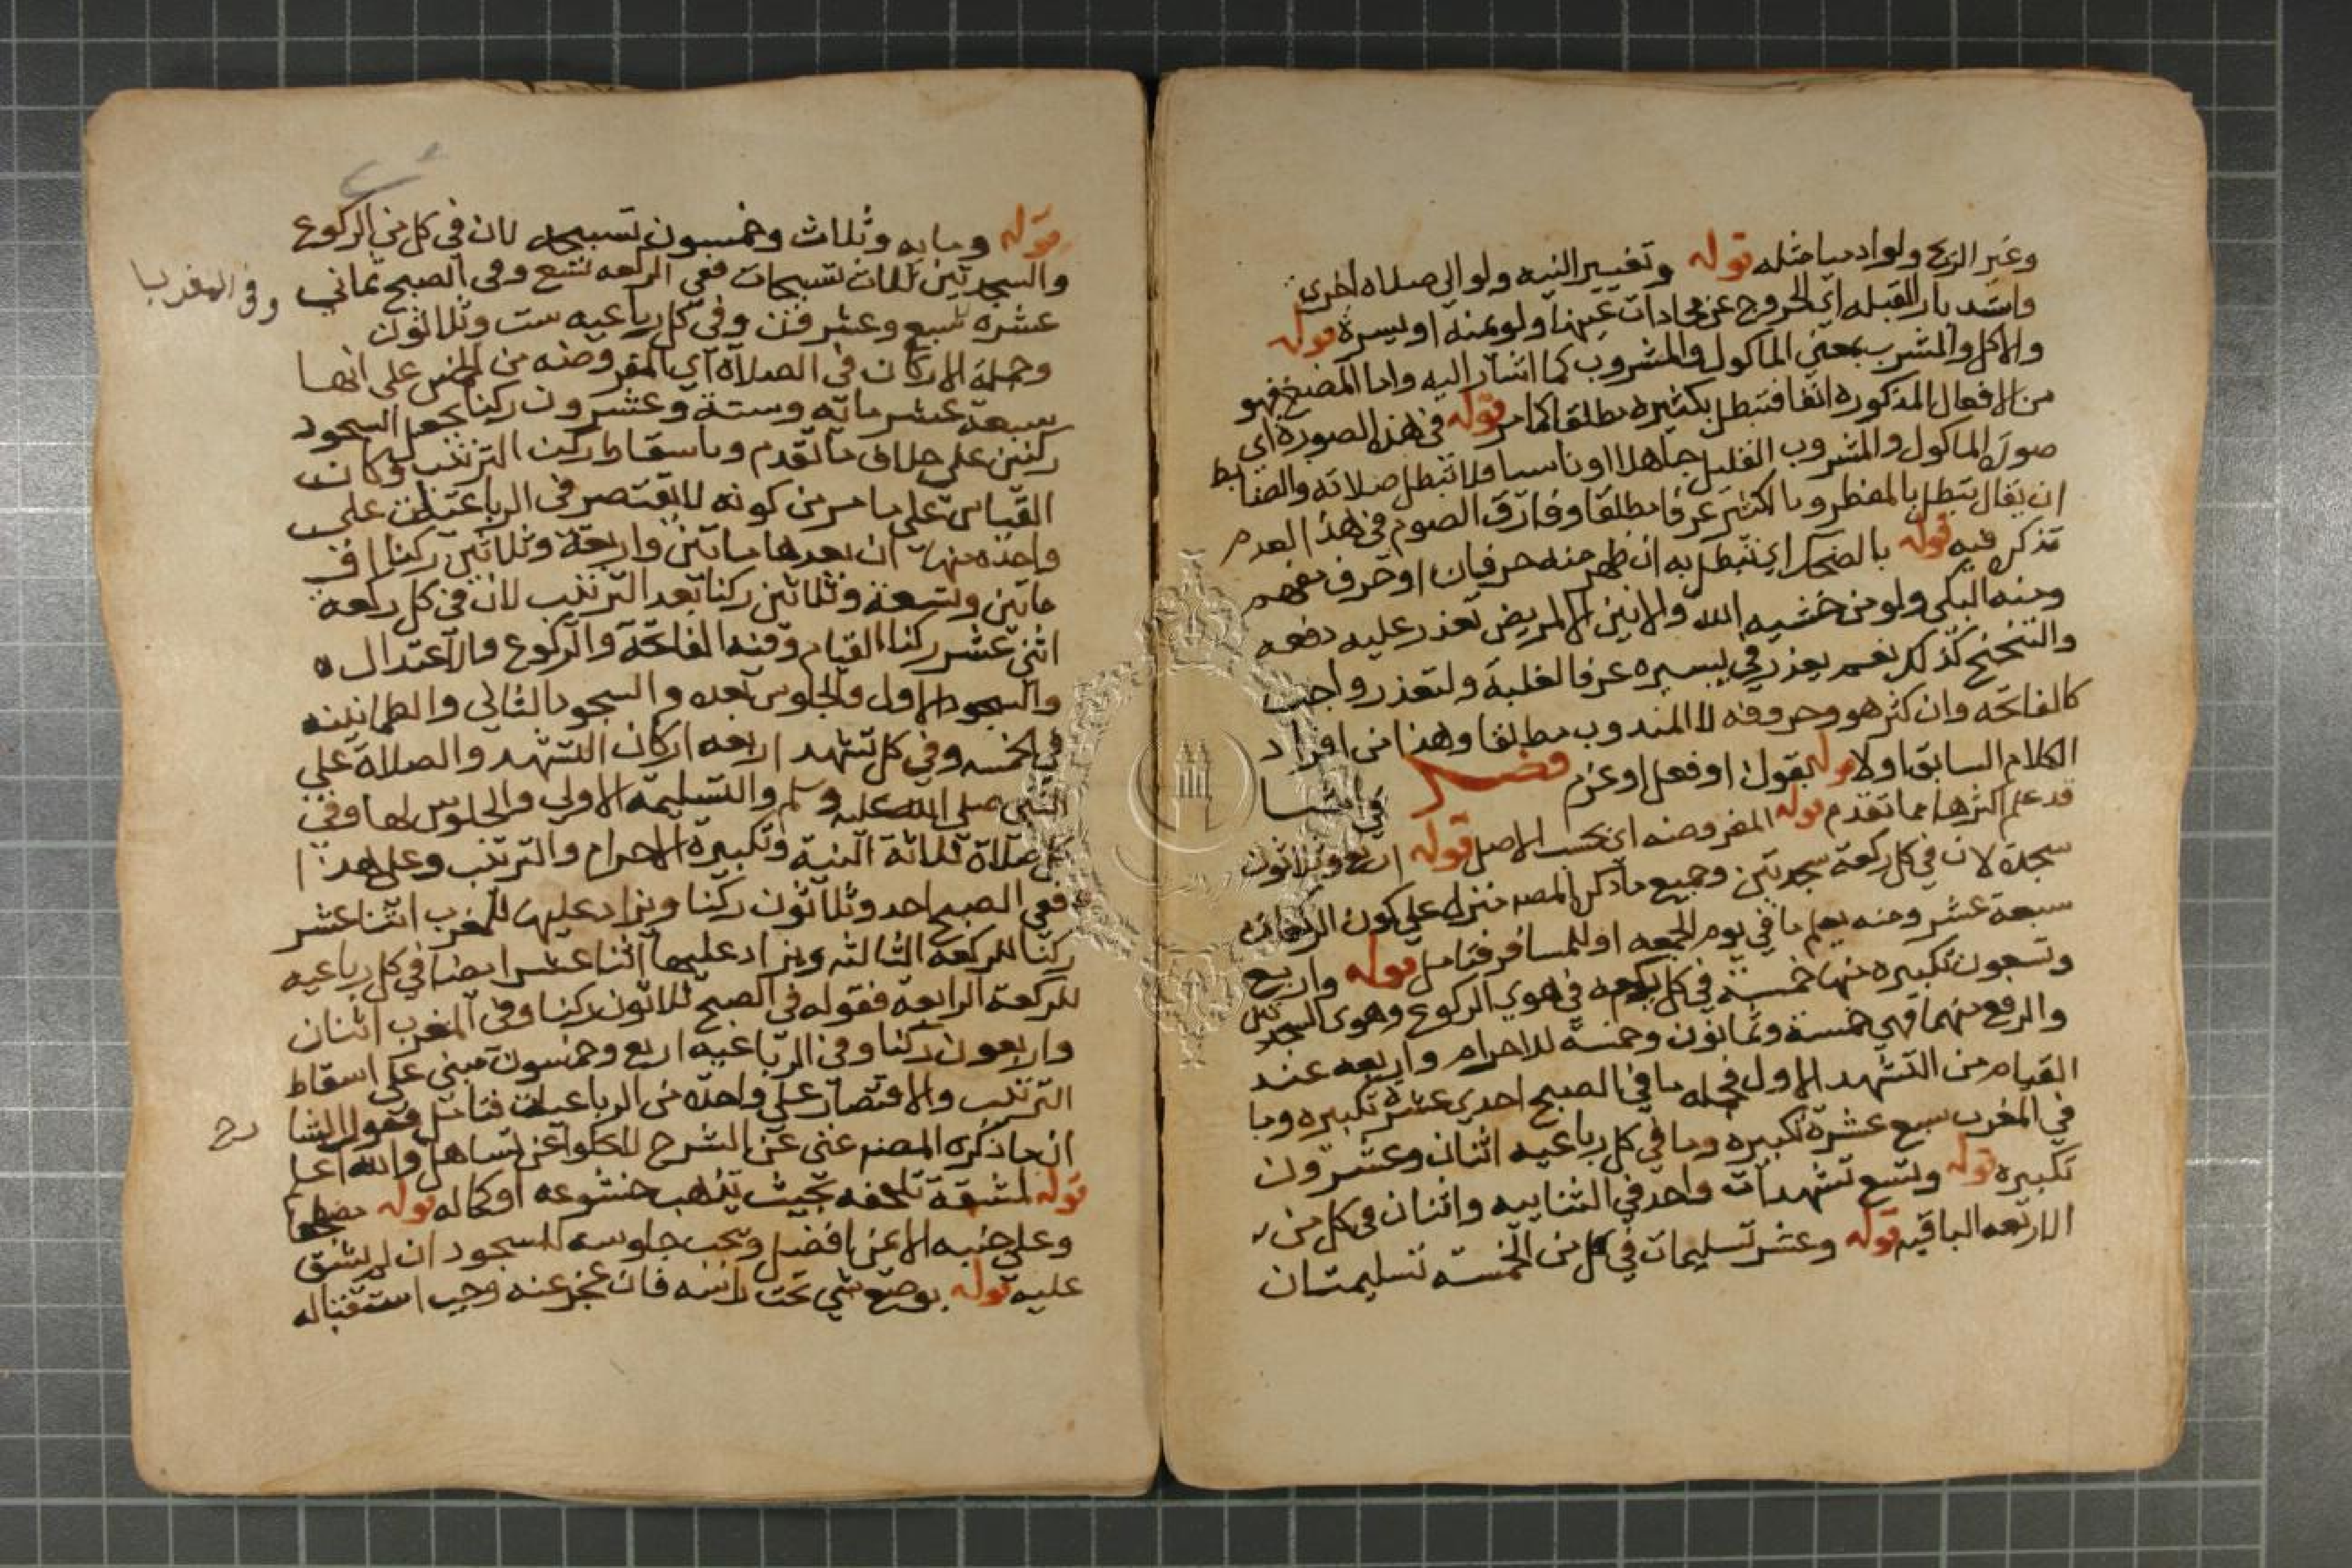 وغير الريح ولو ادميا مثله قوله وتغيير النيه ولو الي صلاه اخري
واستدبار القبله اي الخروج عن محاذات عينها ولو يمنه او يسرة قوله
والاكل والشرب بمعني الماكول والمشروب كما اشار اليه واما المضغ فهو
من الافعال المذكوره انفا فتبطل بكثيره مطلقا كما مر قوله في هذه الصوره اي
صورة الماكول والمشروب القليل جاهلا او ناسيا فلا تبطل صلاته والضابط
ان يقال تبطل بالمفطر وبالكثير عرفا مطلقا وفارق الصوم في هذا لعدم
تذكره فيه قوله بالضحك اي تبطل به ان ظهر منه حرفان او حرف مفهم
ومنه البكي ولو من خشيه الله والانين الا لمريض تعذر عليه دفعه
والتنحنح كذلك نعم يعذر في يسيره عرفا لغلبة ولتعذر واجب
كالفاتحه وان كثر هو وحروفه لا المندوب مطلقا وهذا من افراد
الكلام السابق اولا قوله بقول او فعل او عزم فصل في اشيا
قد علم اكثرها مما تقدم قوله المفروضه اي بحسب الاصل قوله اربع وثلاثون
سجدة لان في كل ركعة سجدتين وجميع ما ذكره المصنف منزل علي كون الركعات
سبعة عشر ومنه يعلم ما في يوم الجمعه او للمسافر فتامل قوله واربع
وتسعون تكبيره منها خمسة في كل ركعه في هوي الركوع وهوي السجدتين
والرفع منهما فهي خمسة وثمانون وخمسة للاحرام واربعه عند
القيام من التشهد الاول فجمله ما في الصبح احدي عشرة تكبيره وما
في المغرب سبع عشرة تكبيره وما في كل رباعيه اثنان وعشرون
تكبيره قوله وتسع تشهدات واحد في الثنائيه واثنان في كل من
الاربعه الباقيه قوله وعشر تسليمات في كل من الخمسة تسليمتان
قوله ومايه وثلاث وخمسون تسبيحه لان في كل من الركوع
والسجدتين ثلاث تسبيحات ففي الركعه تسع وفي الصبح ثماني
وفي المغرب
عشره سبع وعشرون وفي كل رباعيه ست وثلاثون
وجملة الاركان في الصلاة اي المفروضه من الخمس علي انها
سبعة عشر مائه وستة وعشرون ركنا بجعل السجود
ركنين علي خلاف ما تقدم وباسقاط ركن الترتيب وكان
القياس علي ما مر من كونه للمقتصر في الرباعيات علي
واحده منها ان يعدها مائتين واربعة وثلاثين ركنا او
مائتين وتسعة وثلاثين ركنا بعد الترتيب لان في كل ركعه
اثني عشر ركنا القيام وقنه الفاتحة والركوع والاعتدال
والسجود الاول والجلوس بعده والسجود الثاني والطمانينه
في الخمسه وفي كل تشهد اربعه اركان التشهد والصلاة علي
النبي صلي الله عليه وسلم والتسليمة الاولي والجلوس لها وفي
كل صلاة ثلاثة النية وتكبيرة الاحرام والترتيب وعلي هذا
ففي الصبح احد وثلاثون ركنا ويزاد عليها للمغرب اثنا عشر
ركنا للركعه الثالثه ويزاد عليها اثنا عشر ايضا في كل رباعيه
للركعة الرابعة فقوله في الصبح ثلاثون ركنا وفي المغرب اثنان
واربعون ركنا وفي الرباعيه اربع وخمسون مبني علي اسقاط
الترتيب والاقتصار علي واحده من الرباعيات فتامل فقول الشا
رح
ان ما ذكره المصنف غني عن الشرح لا يخلو عن تساهل والله اعلم
قوله لمشقة تلحقه بحيث يذهب خشوعه او كماله قوله مضطجعا
وعلي جنبه الايمن افضل ويجب جلوسه للسجود ان لم يشق
عليه قوله بوضع شي تحت راسه فان عجز عنه وجب استقباله